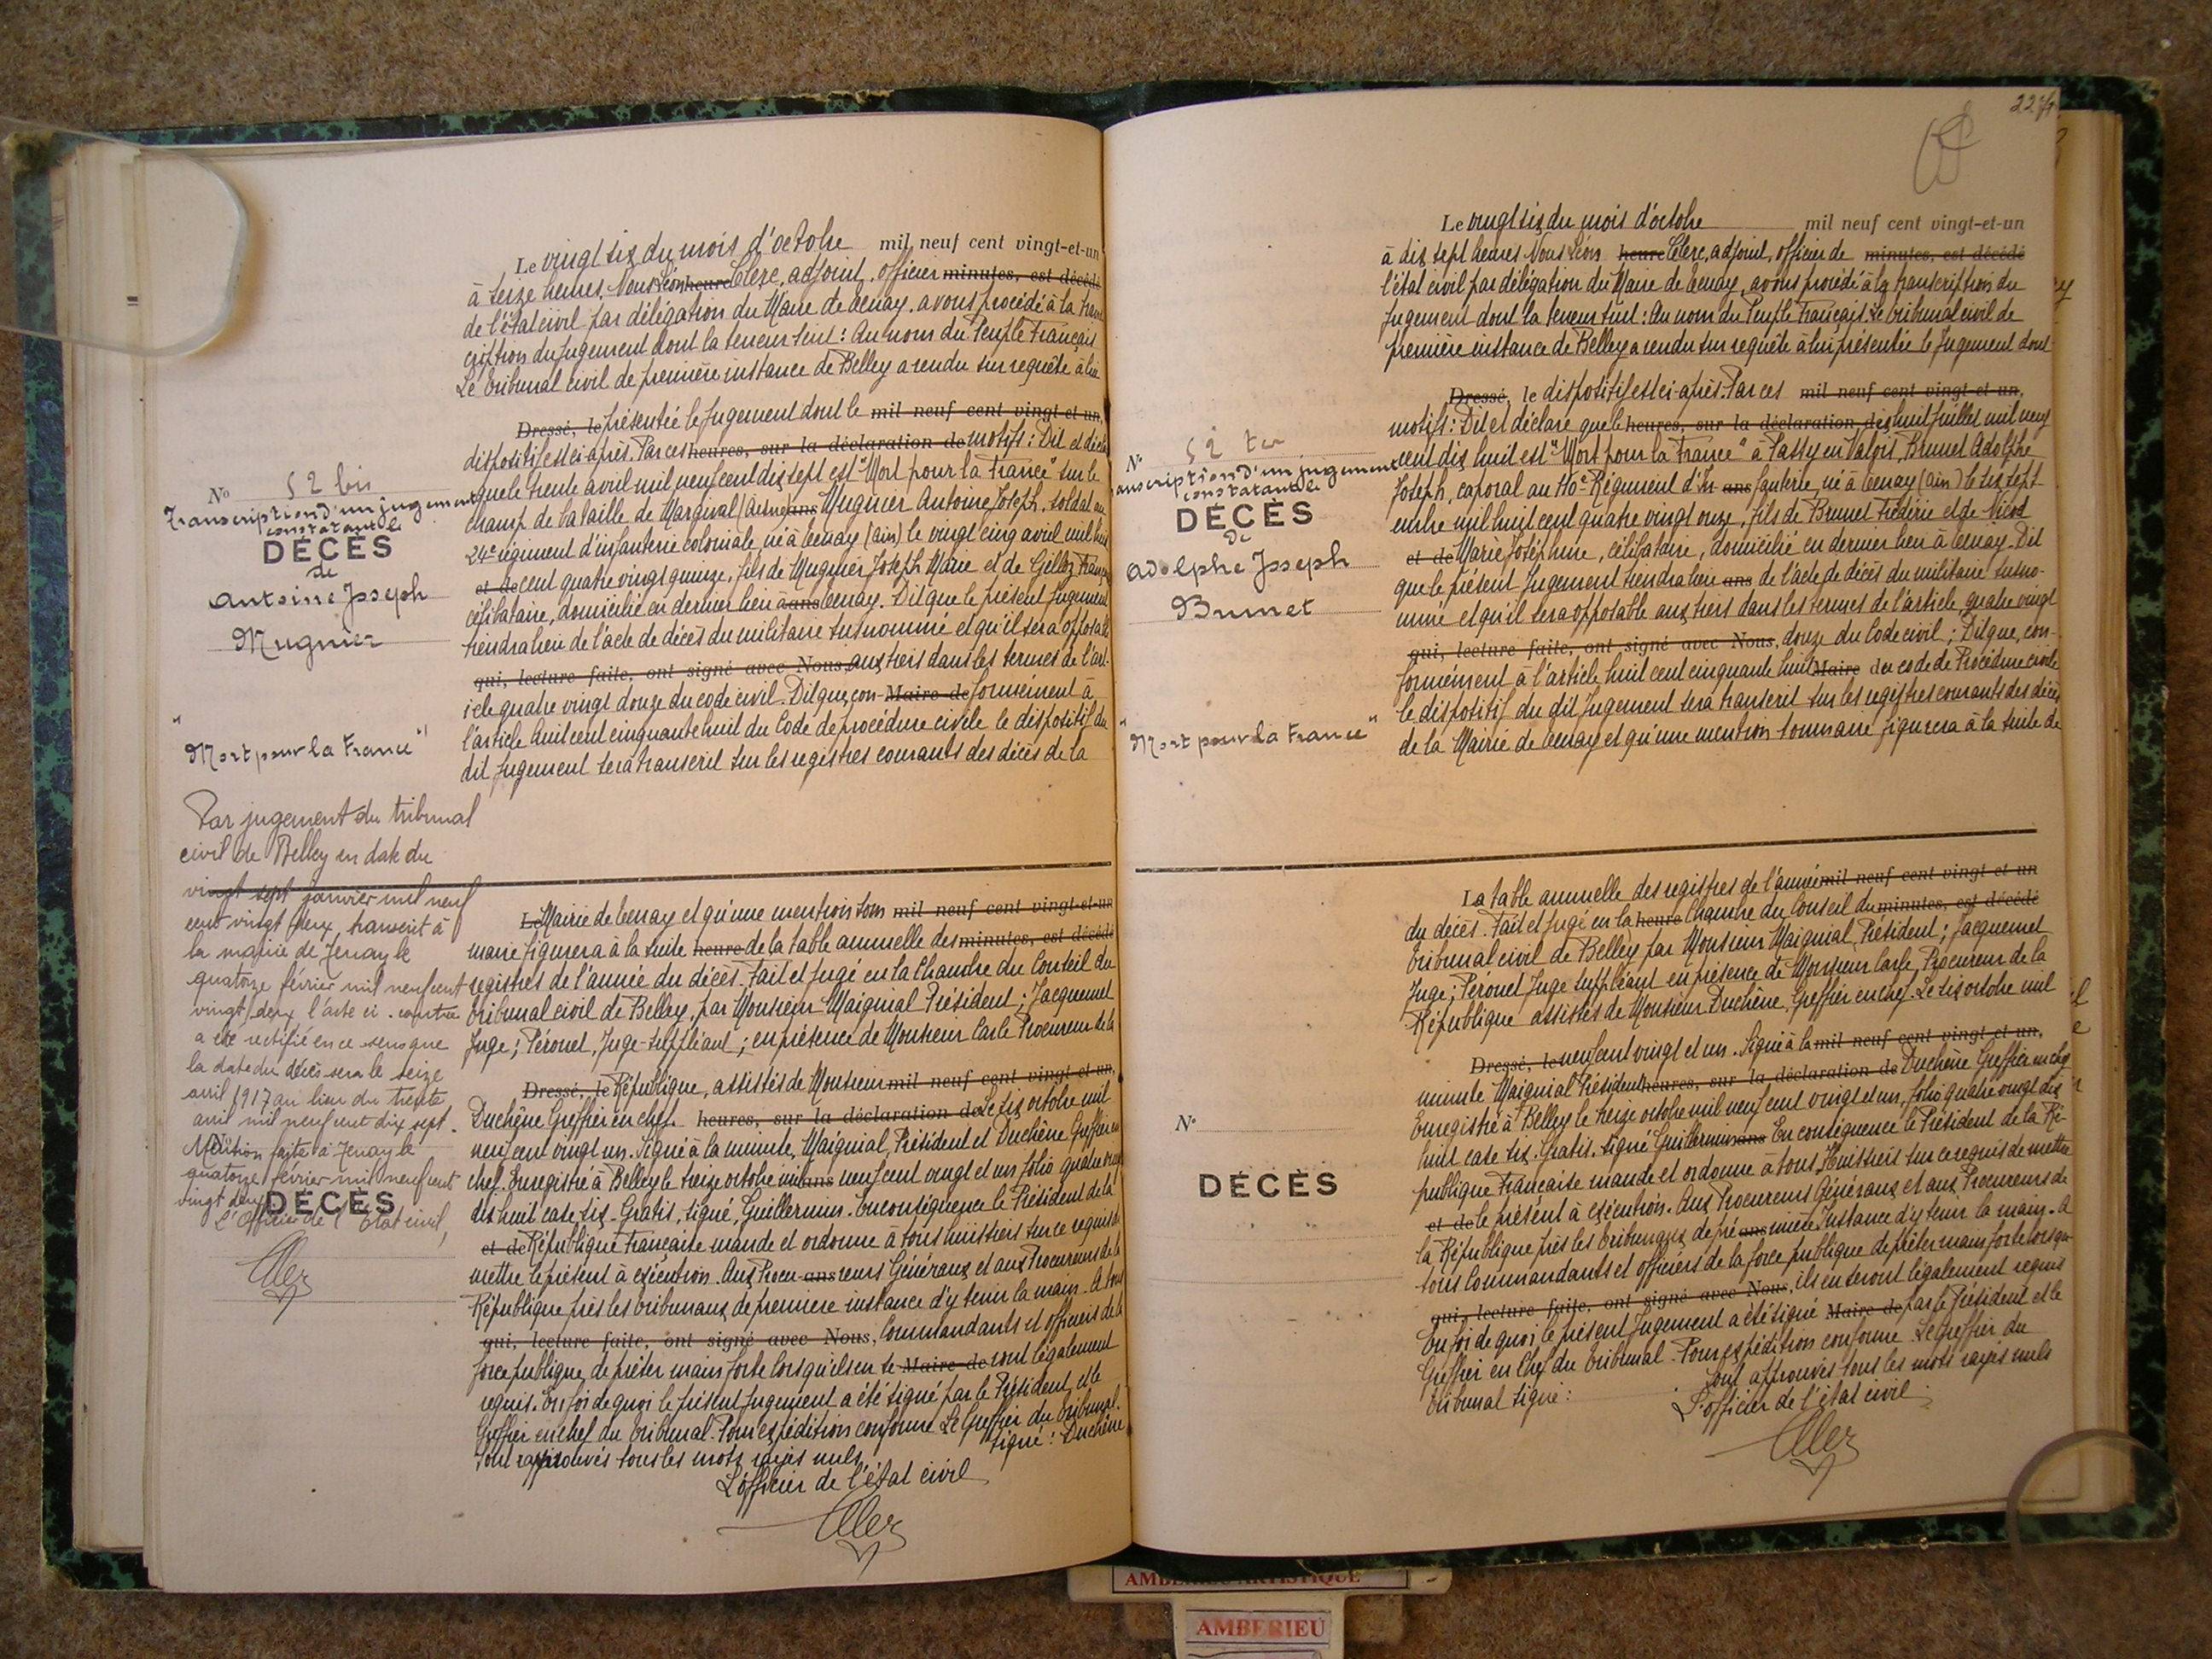 Le vingt six du mois d'octobre mil neuf cent vingt-et-un
à seize heures. Nous Léon heure Clerc, adjoint, officier minutes, est décédé
de l'état civil par délégation du Maire de Tenay, avons procédé à la trans
cription du jugement dont la teneur suit : Au nom du Peuple Français
Le Tribunal civil de première instance de Belley a rendu sur requête à lui
Dressé, le présentée le jugement dont le mil neuf cent vingt et un,
dispositif est ci-après. Par ces heures, sur la déclaration de motifs : Dit et déclare
que le trente avril mil neuf cent dix sept est "Mort pour la France" sur le
champ de bataille de Margival (Aisne) ans Mugnier Antoine Joseph, soldat au
24e régiment d'infanterie coloniale, né à Tenay (ain) le vingt cinq avril mil huit
et de cent quatre vingt quinze, fils de Mugnier Joseph Marie et de Gilloz
célibataire, domicilié en dernier lieu à ans Tenay. Dit que le présent jugement
tiendra lieu de l'acte de décès du militaire susnommé et qu'il sera opposable
qui, lecture faite, ont signé avec Nous, aux tiers dans les termes de l'art-
icle quatre vingt douze du code civil. Dit que, con- Maire de formément à
l'article huit cent cinquante huit du Code de procédure civile le dispositif du
dit jugement sera transcrit sur les registres courants des décès de la
No 52 bis
Transcription d'un jugement
constatant le
DÉCÈS
de
Antoine Joseph
Mugnier
"Mort pour la France"
Par jugement du tribunal
civil de Belley en date du
vingt sept janvier mil neuf
cent vingt deux, transcrit à
la mairie de Tenay le
quatorze février mil neuf cent
vingt deux l'acte ci-contre
a été rectifié en ce sens que
la date du décès sera le seize
avril 1917 au lieu du trente
avril mil neuf cent dix sept.
Mention faite à Tenay le
quatorze février mil neuf cent
vingt deux
DÉCÈS
L'Officier de l'Etat civil,
Le Mairie de Tenay et qu'une mention som mil neuf cent vingt-et-un
maire figurera à la suite heure de la table annuelle des minutes, est décédé
registres de l'année du décès. Fait et jugé en la Chambre du Conseil du
Tribunal civil de Belley, par Monsieur Maignial Président ; Jacquemet
Juge ; Pérouel, Juge-suppléant ; en présence de Monsieur Carle Procureur de la
Dressé, le République, assistés de Monsieur mil neuf cent vingt et un,
Duchêne Greffier en chef. heures, sur la déclaration de Le six octobre mil
neuf cent vingt un. Signé à la minute, Maignial, Président et Duchêne Greffier en
chef. Enregistré à Belley le treize octobre mil ans neuf cent vingt et un folio quatre vingt
dix huit case six. Gratis, signé, Guillermin. En conséquence le Président de la
et de République Française mande et ordonne à tous huissiers sur ce requis de
mettre le présent à exécution. Aux Procu- ans reurs Généraux et aux Procureurs de la
République près les tribunaux de première instance d'y tenir la main. A tous
qui, lecture faite, ont signé avec Nous, Commandants et officiers de la
force publique de prêter main forte lorsqu'ils en se- Maire de ront légalement
requis. En foi de quoi le présent jugement a été signé par le Président et le
Greffier en chef du Tribunal. Pour expédition conforme Le Greffier du Tribunal.
signé : Duchêne
Sont approuvés tous les mots rayés nuls
L'officier de l'état civil
227
Le vingt six du mois d'octobre mil neuf cent vingt-et-un
à dix sept heures Nous Léon heure Clerc, adjoint, officier de minutes, est décédé
l'état civil par délégation du Maire de Tenay, avons procédé à la transcription du
jugement dont la teneur suit : Au nom du Peuple Français. Le tribunal civil de
première instance de Belley a rendu sur requête à lui présentée le jugement dont
Dressé, le dispositif est ci-après. Par ces mil neuf cent vingt et un,
motifs : Dit et déclare que le heures, sur la déclaration de dix huit juillet mil neuf
cent dix huit est "Mort pour la France" à Passy en Valois, Brunet Adolphe
Joseph, caporal au 110e Régiment d'In ans fanterie, né à Tenay (ain) le six sept
embre mil huit cent quatre vingt onze, fils de Brunet Frédéric et de Nicod
et de Marie Joséphine, célibataire, domicilié en dernier lieu à Tenay. Dit
que le présent jugement tiendra lieu ans de l'acte de décès du militaire susno-
mmé et qu'il sera opposable aux tiers dans les termes de l'article quatre vingt
qui, lecture faite, ont signé avec Nous, douze du Code civil ; Dit que, con-
formément à l'article huit cent cinquante huit Maire du code de Procédure civile
le dispositif du dit jugement sera transcrit sur les registres courants des décès
de la Mairie de Tenay et qu'une mention sommaire figurera à la suite de
No 52 ter
anscription d'un jugement
constatant le
DÉCÈS
de
Adolphe Joseph
Brunet
"Mort pour la France"
La table annuelle des registres de l'année mil neuf cent vingt et un
du décès. Fait et jugé en la heure Chambre du Conseil du minutes, est décédé
Tribunal civil de Belley par Monsieur Maignial, Président ; Jacquemet
Juge ; Pérouel Juge suppléant en présence de Monsieur Carle, Procureur de la
République assistés de Monsieur Duchêne, Greffier en chef. Le six octobre mil
Dressé, le neuf cent vingt et un. Signé à la mil neuf cent vingt et un,
minute Maignial Président heures, sur la déclaration de Duchêne Greffier en chef
Enregistré à Belley le treize octobre mil neuf cent vingt et un, folio quatre vingt dix
huit case six. Gratis. signé Guillermin ans En conséquence le Président de la Ré-
publique Française mande et ordonne à tous Huissiers sur ce requis de mettre
et de le présent à exécution. Aux Procureurs Généraux et aux Procureurs de
la République près les tribunaux de pre ans mière Instance d'y tenir la main. A
tous Commandants et officiers de la force publique de prêter main forte lorsqu-
qui, lecture faite, ont signé avec Nous, ils en seront légalement requis
En foi de quoi le présent jugement a été signé Maire de par le Président et le
Greffier en Chef du Tribunal. Pour expédition conforme Le Greffier du
Tribunal signé :
Sont approuvés tous les mots rayés nuls
L'officier de l'état civil
No
DÉCÈS
AMBERIEU ARTISTIQUE
AMBERIEU